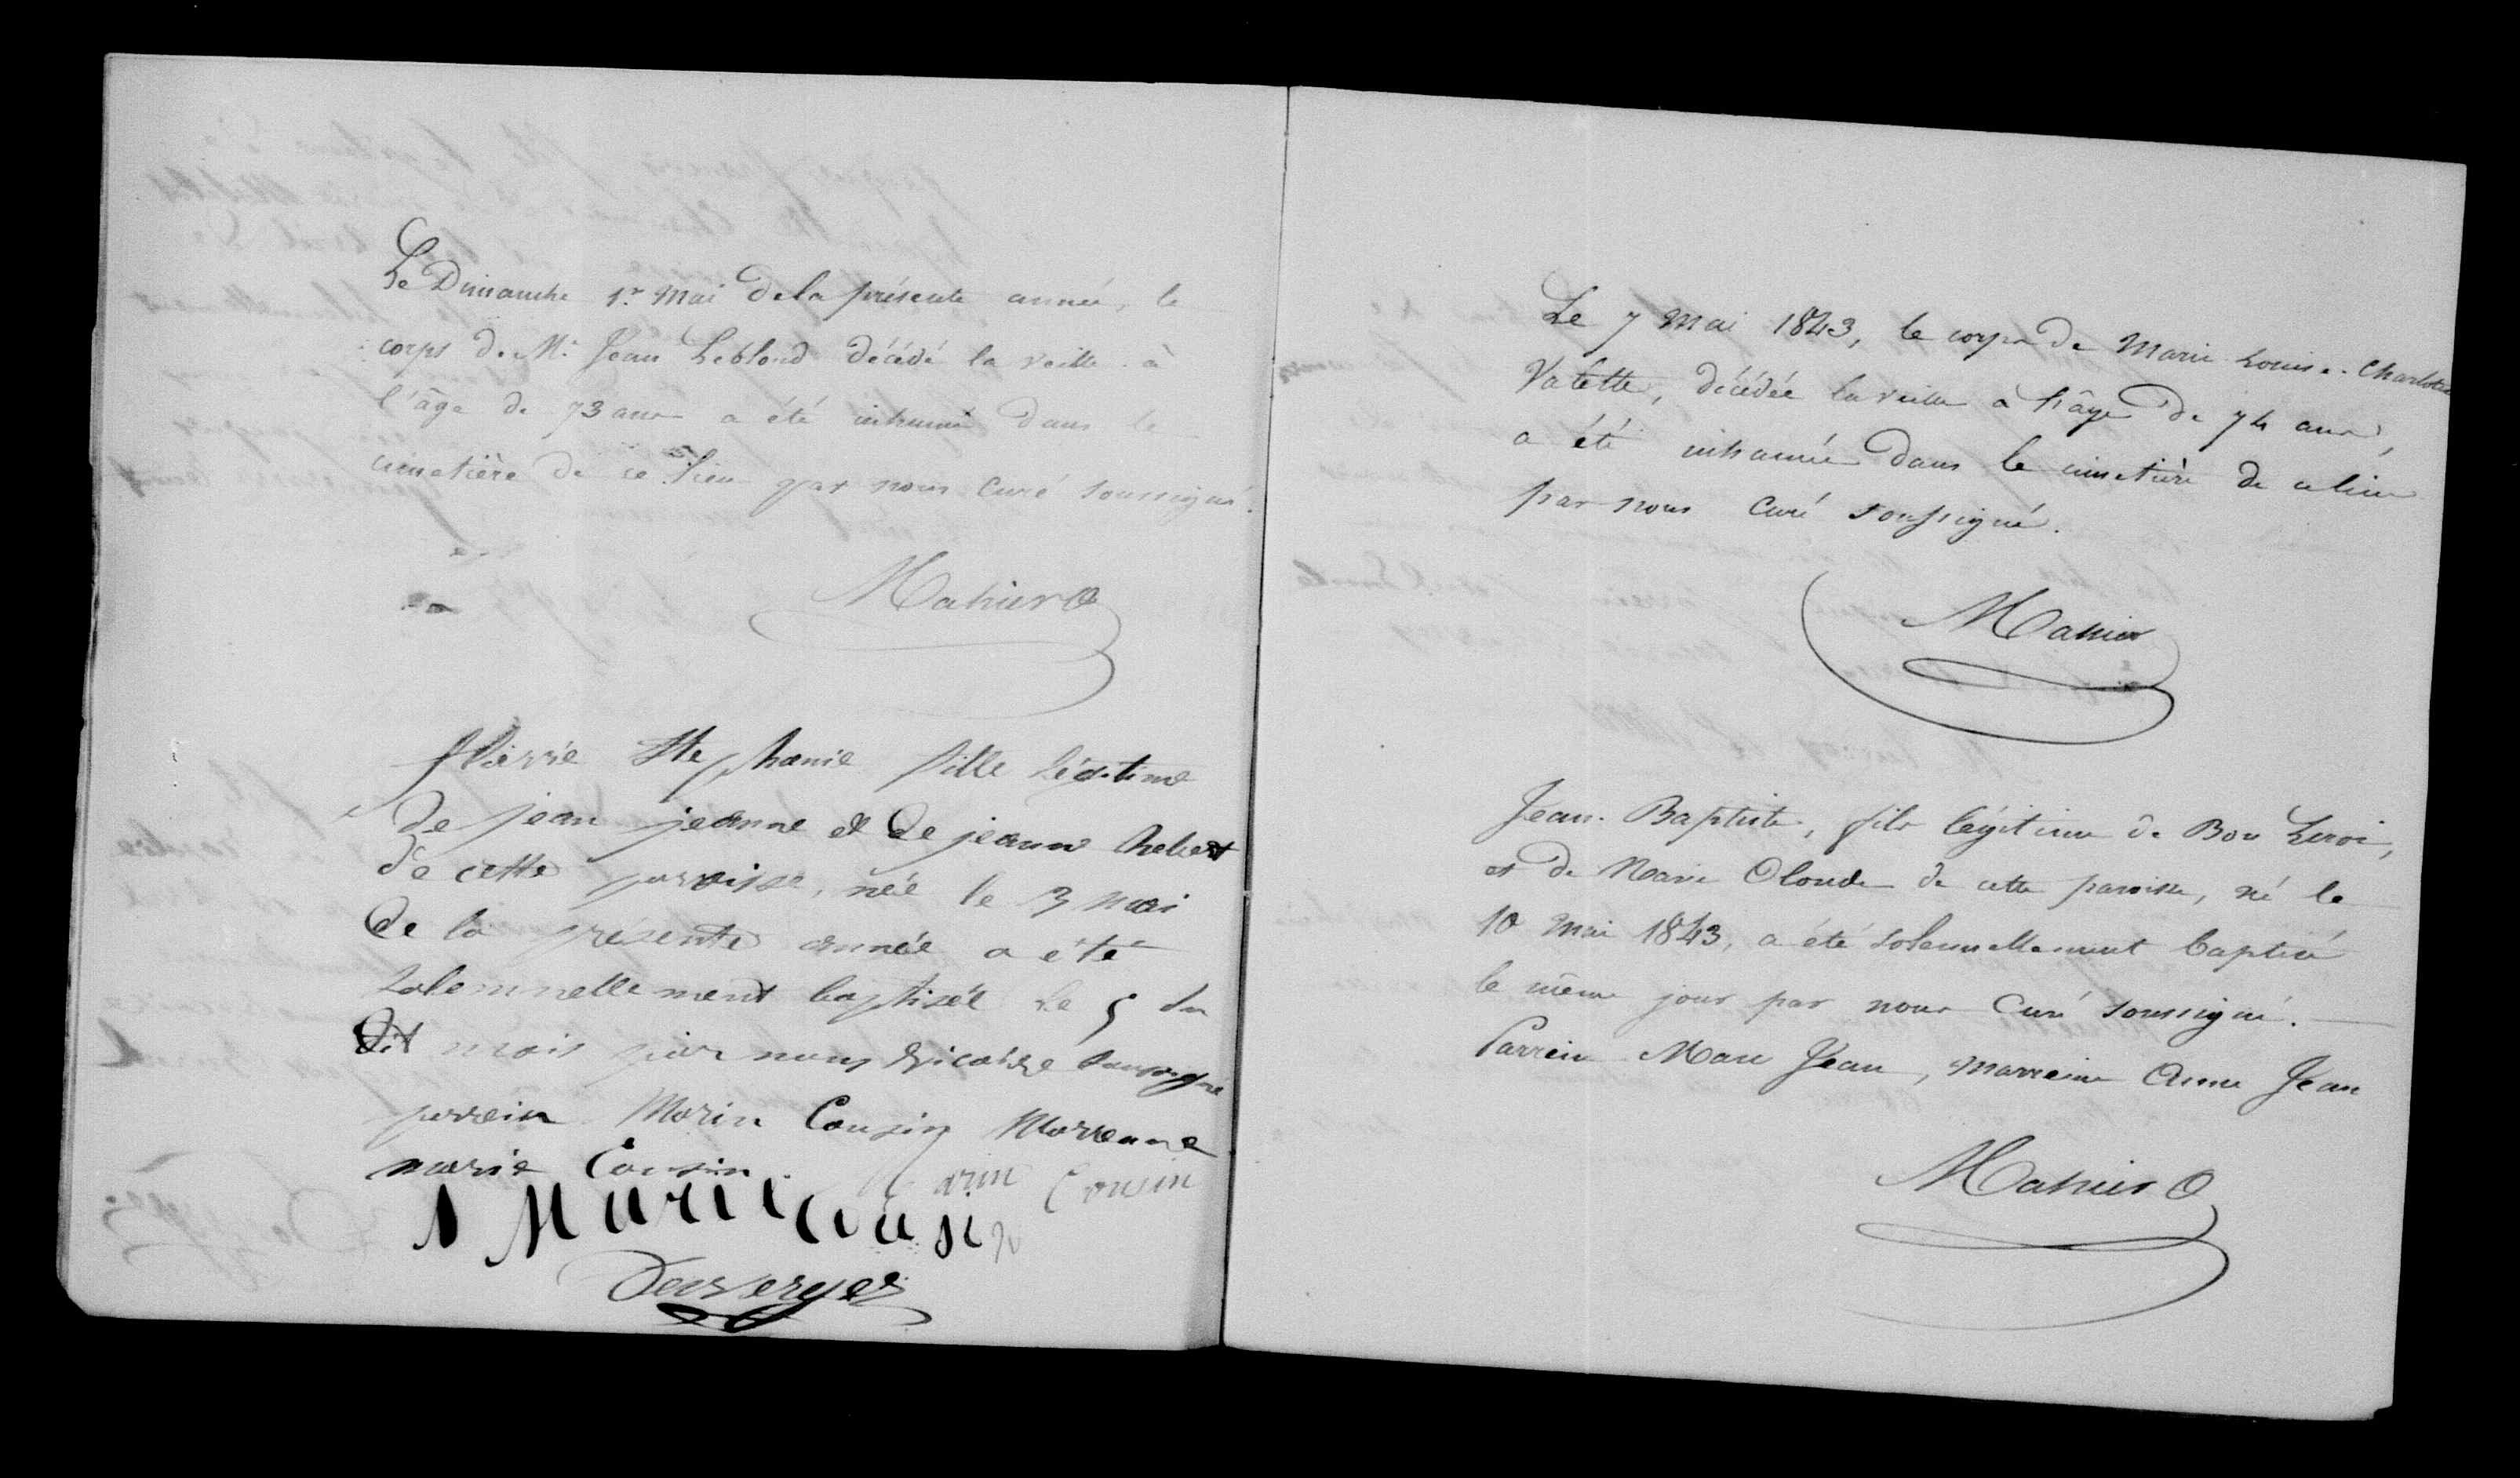 Le Dimanche 1.er Mai de la présente année, le
corps de Mr Jean Leblond décédé la veille à
l'âge de 73 ans a été inhumé dans le
cimetière de ce lieu par nous curé soussigné.
Mahier
Stephanie fille légitime
de jean jeanne et de jeanne hebert
de cette parroisse, née le 3 mai
de la présente année a été
solemnellement baptisée le 5 du
dit mois par nous vicaire soussigné
parrein Marin Cousin Marrenne
marie Cousin. Marin Cousin
Marie Cousin
Le 7 Mai 1843, le corps de Marie Louise Charlotte
Valette, décédée la veille à l'âge de 74 ans,
a été inhumée dans le cimetière de ce lieu
par nous Curé soussigné.
Mahier
Jean-Baptiste, fils légitime de Bon Leroi,
et de Marie de cette paroisse, né le
10 Mai 1843, a été solennellement baptisé
le même jour par nous Curé soussigné.
Parrein Marc Jean, Marreine Anne Jean
Mahier